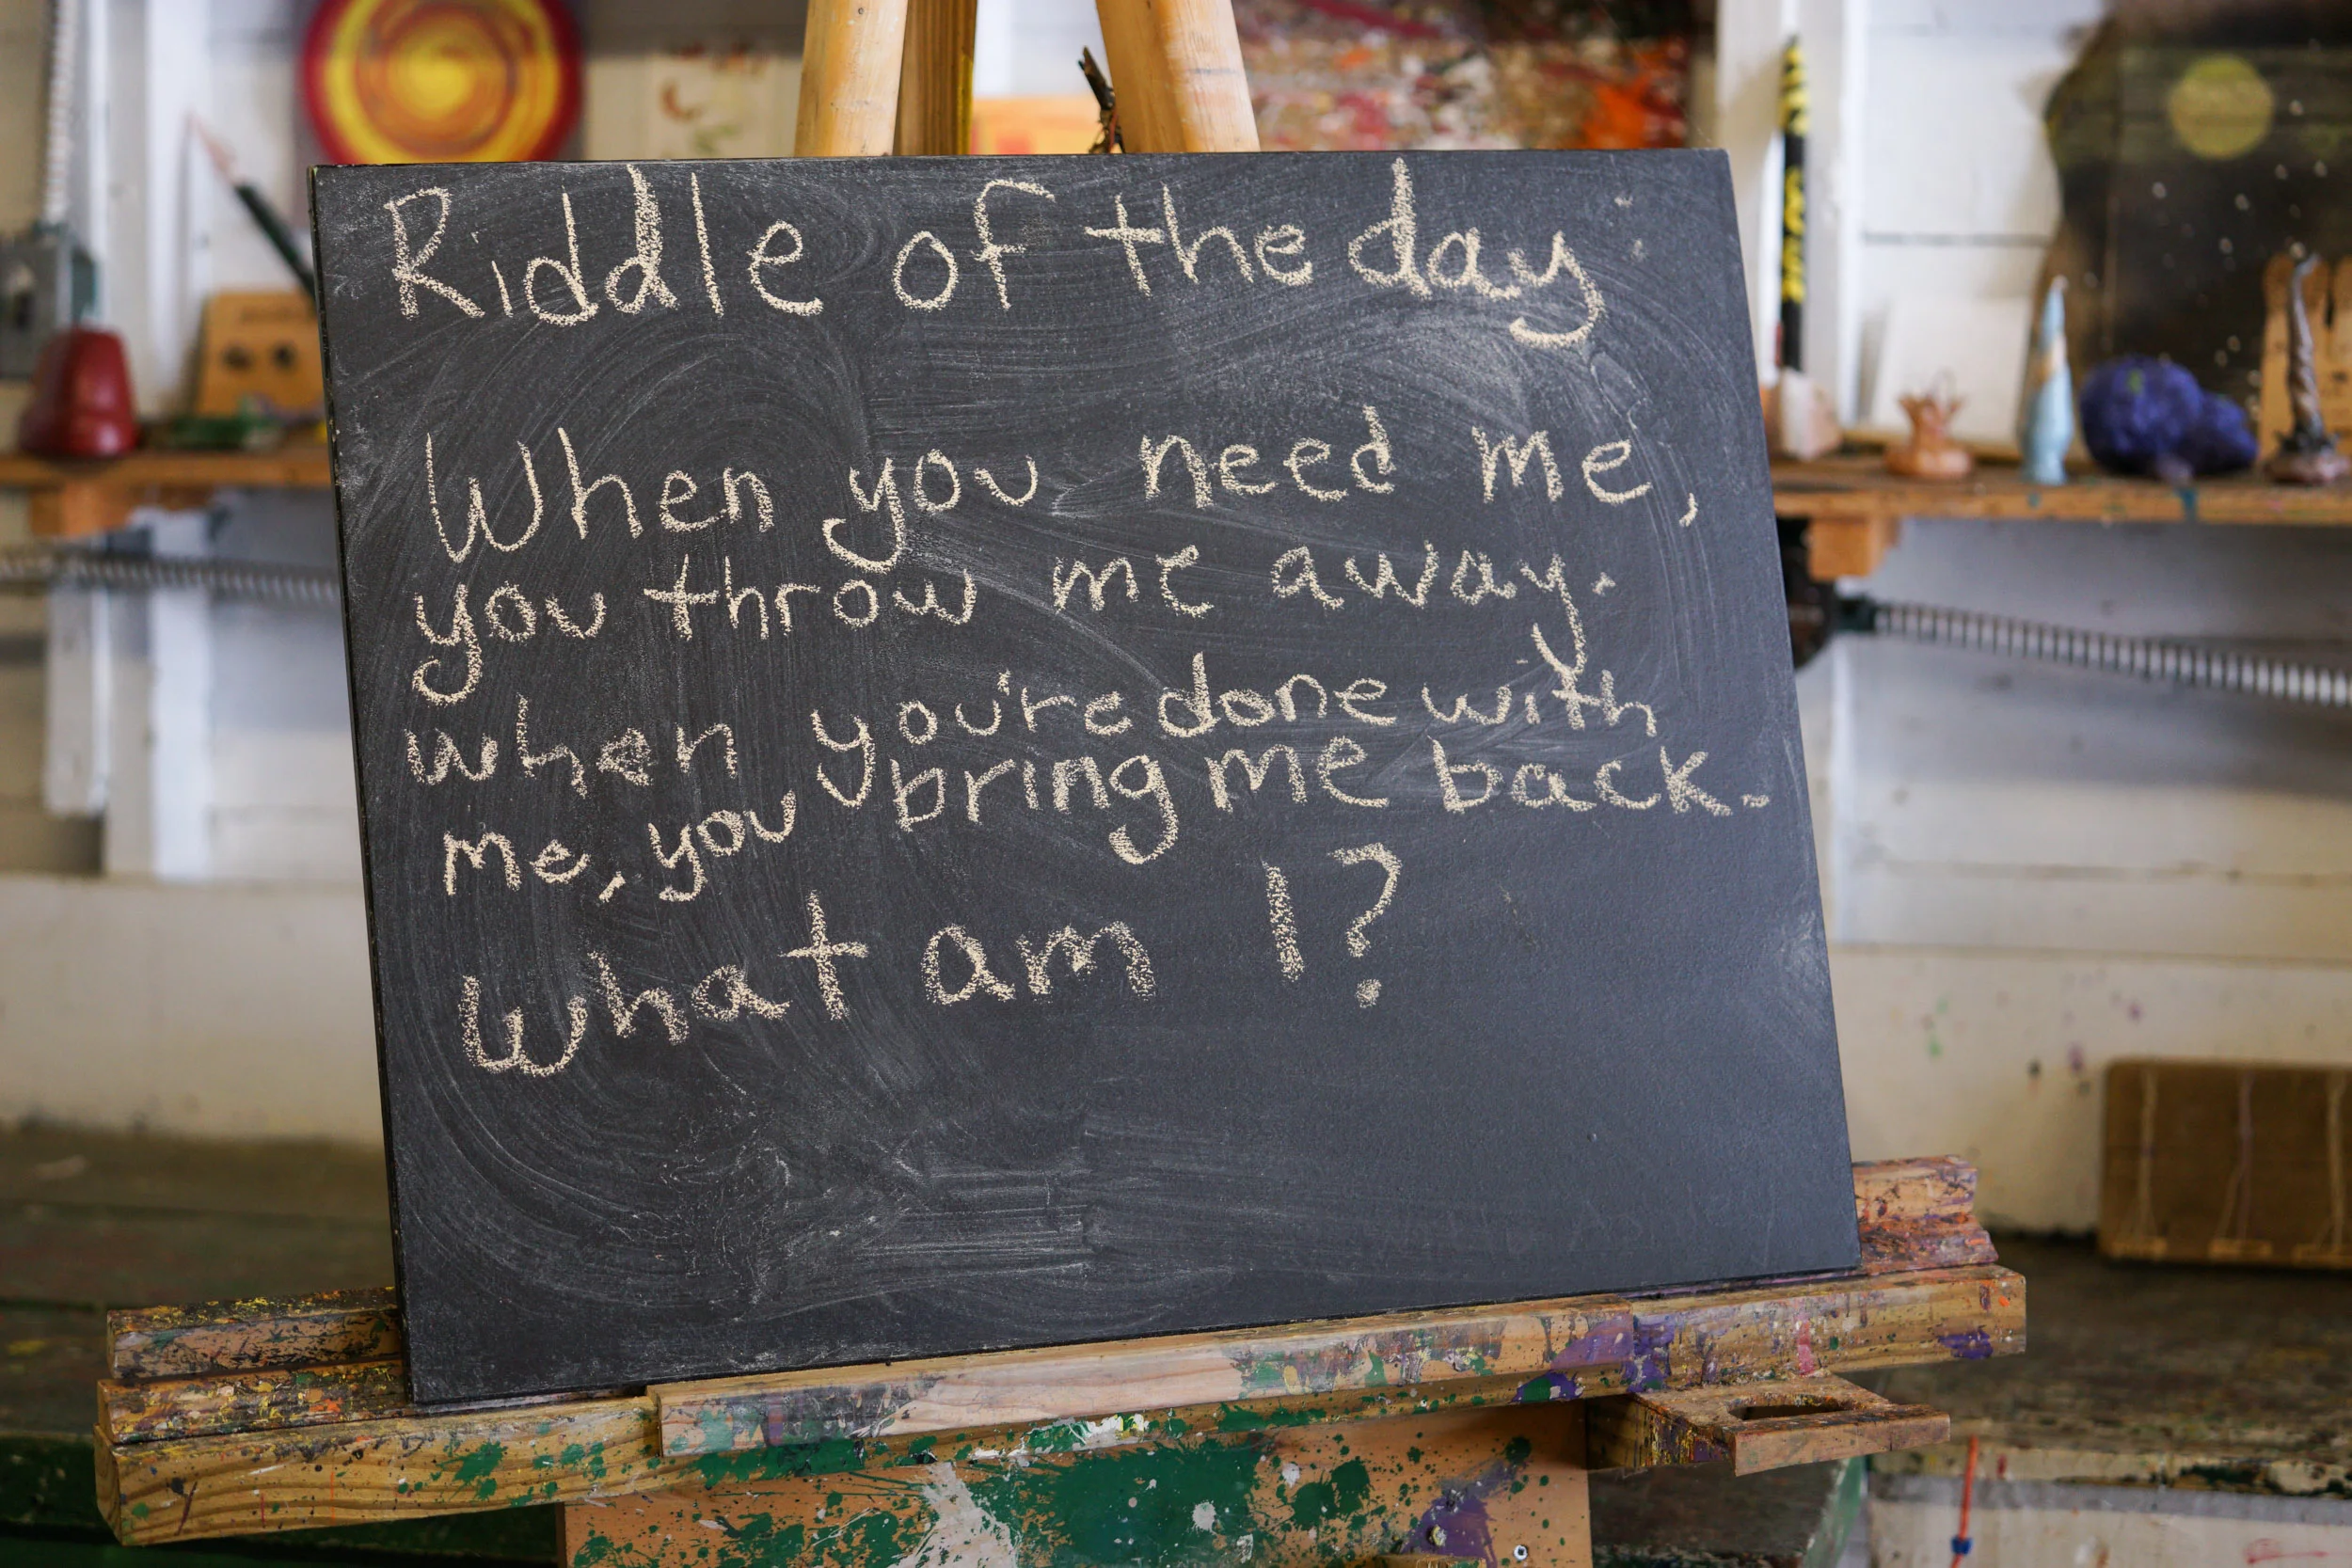 Riddle of the day:
When you need me,
you throw me away.
when you're done with
me, you bring me back.
What am I?